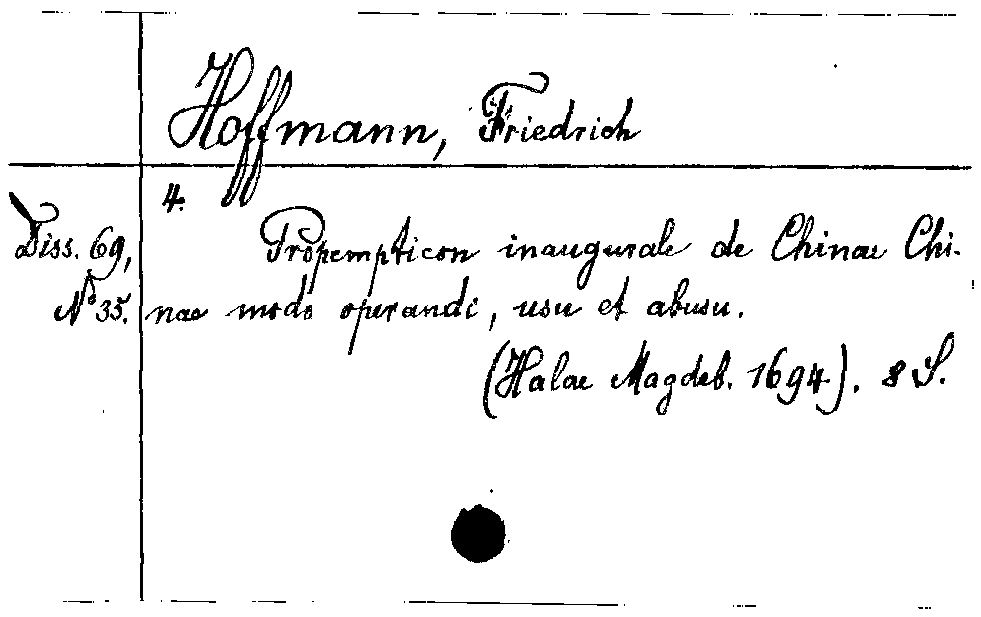 Hoffmann, Friedrich
4.
Diss. 69, Propempticon inaugurale de Chinae Chi-
No 35. nae modo operandi, usu et abusu.
(Halae Magdeb. 1694). 8 S.